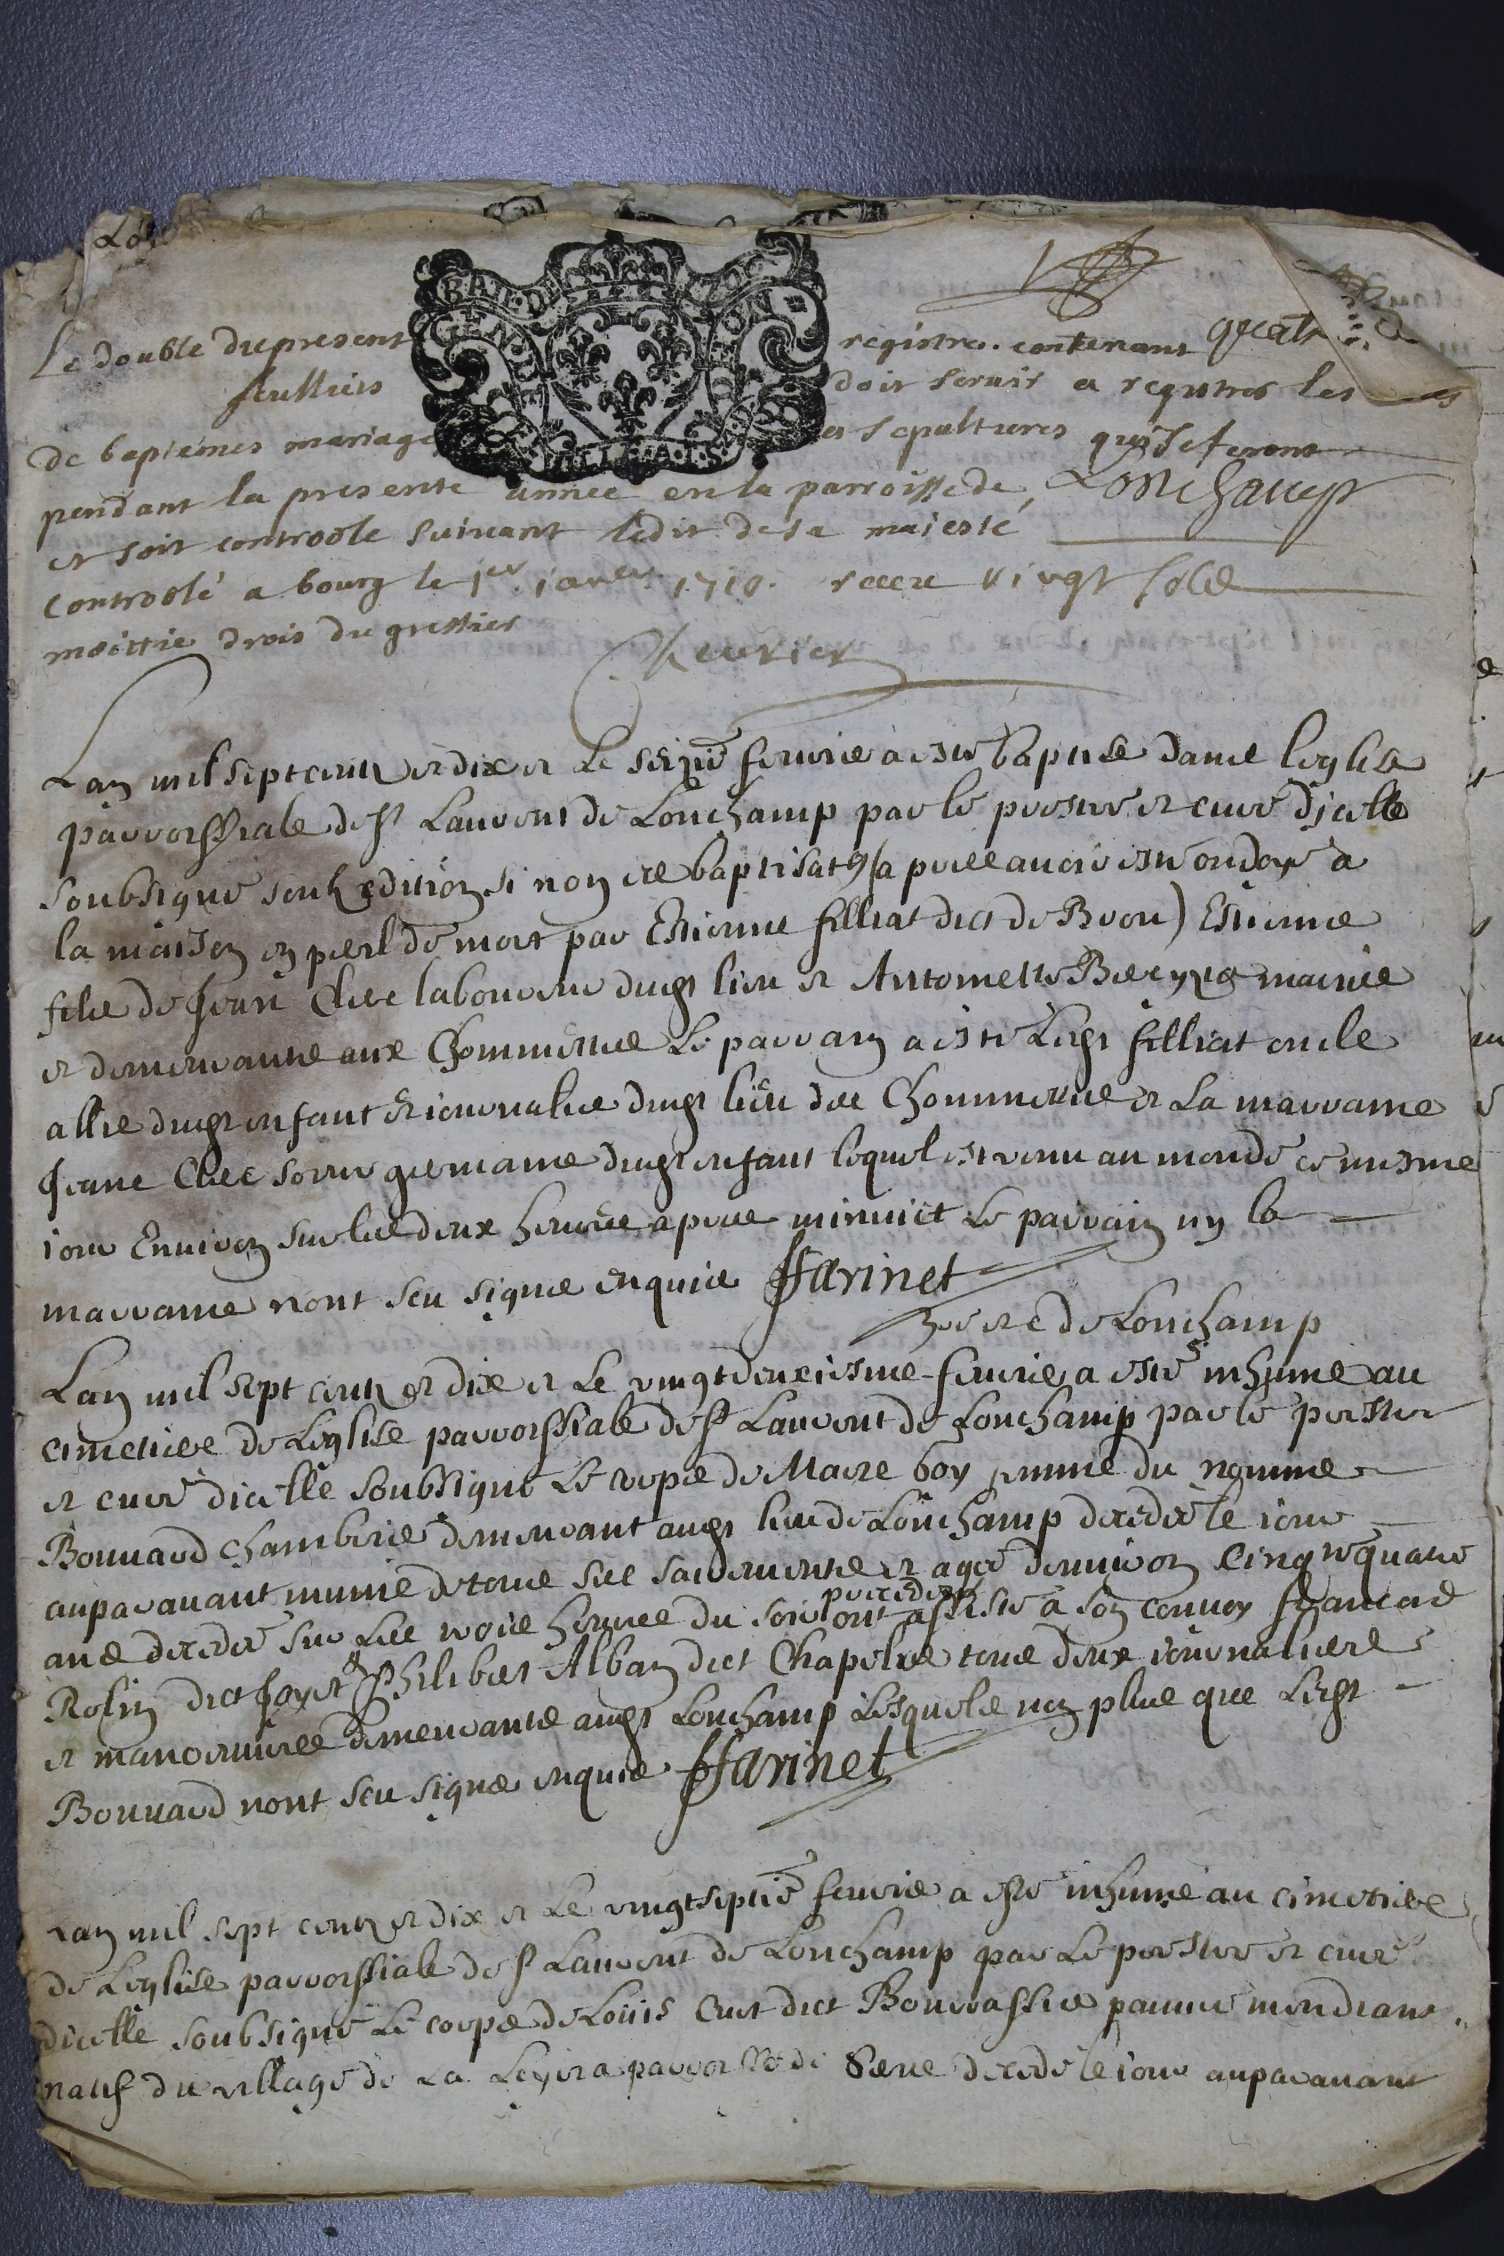 Le double du present registre contenant quatr
feulliets doit servir a registrer les
de baptemes mariage et sepultures qui se feront
pendant la presente année en la parroisse de Lonchamp
et soit controole suivant ledit de sa maiesté
Controolé a bourg le 1er ianer 1710. receu vingt sols
moittie drois du greffier
Cheurier
Lan mil sept centz et dix et Le seizie feurier a este baptise dans leglise
parroissiale de St Laurent de Lonchamp par le prestre et cure dicelle
soubsigné soubz condition si non es baptisatus (apres auoir este ondoye a
la maison en peril de mort par Estienne filliat dict de Bron) Estienne
fils de Jean Clerc laboureur dudt lieu et Antoinette mariés
et demeurants aux Le parrain a este Ledt filliat oncle
allie dudt enfant et iournalier dudt lieu des et La marraine
Jeanne Clerc soeur germaine dudt enfant lequel est venu au monde ce mesme
iour Enuiron sur les deux heures apres minuict Le parrain ny la
marraine nont sceu signer enquis ffarinet
ptre et c de Lonchamp
Lan mil sept centz et dix et Le vingtdeuxiesme feurier a este inhumé au
cimetiere de Leglise parroissiale de St Laurent de Lonchamp par le prestre
et curé dicelle soubsigné Le corps de Marie boy femme du nommé
Bouuard demeurant audt lieu de Lonchamp decedée le iour
auparauant munie de tous ses sacrements et agée denuiron Cinq quatre
ans decedée sur Les trois heures du soir precedent ont assisté a son conuoy francois
Rolin dict Joyet et Philibert Alban dict Chapelus tous deux iournaliers
et manoeuures demeurants audt Lonchamp Lesquels non plus que Ledt
Bouuard nont sceu signer enquis ffarinet
Lan mil sept centz et dix et Le vingtseptie feurier a esté inhumé au cimetiere
de Leglise parroissiale de St Laurent de Lonchamp par Le prestre et curé
dicelle soubsigné Le corps de Loüis Curt dict pauure mendiant
natif du village de La parroisse de decede le iour auparauant